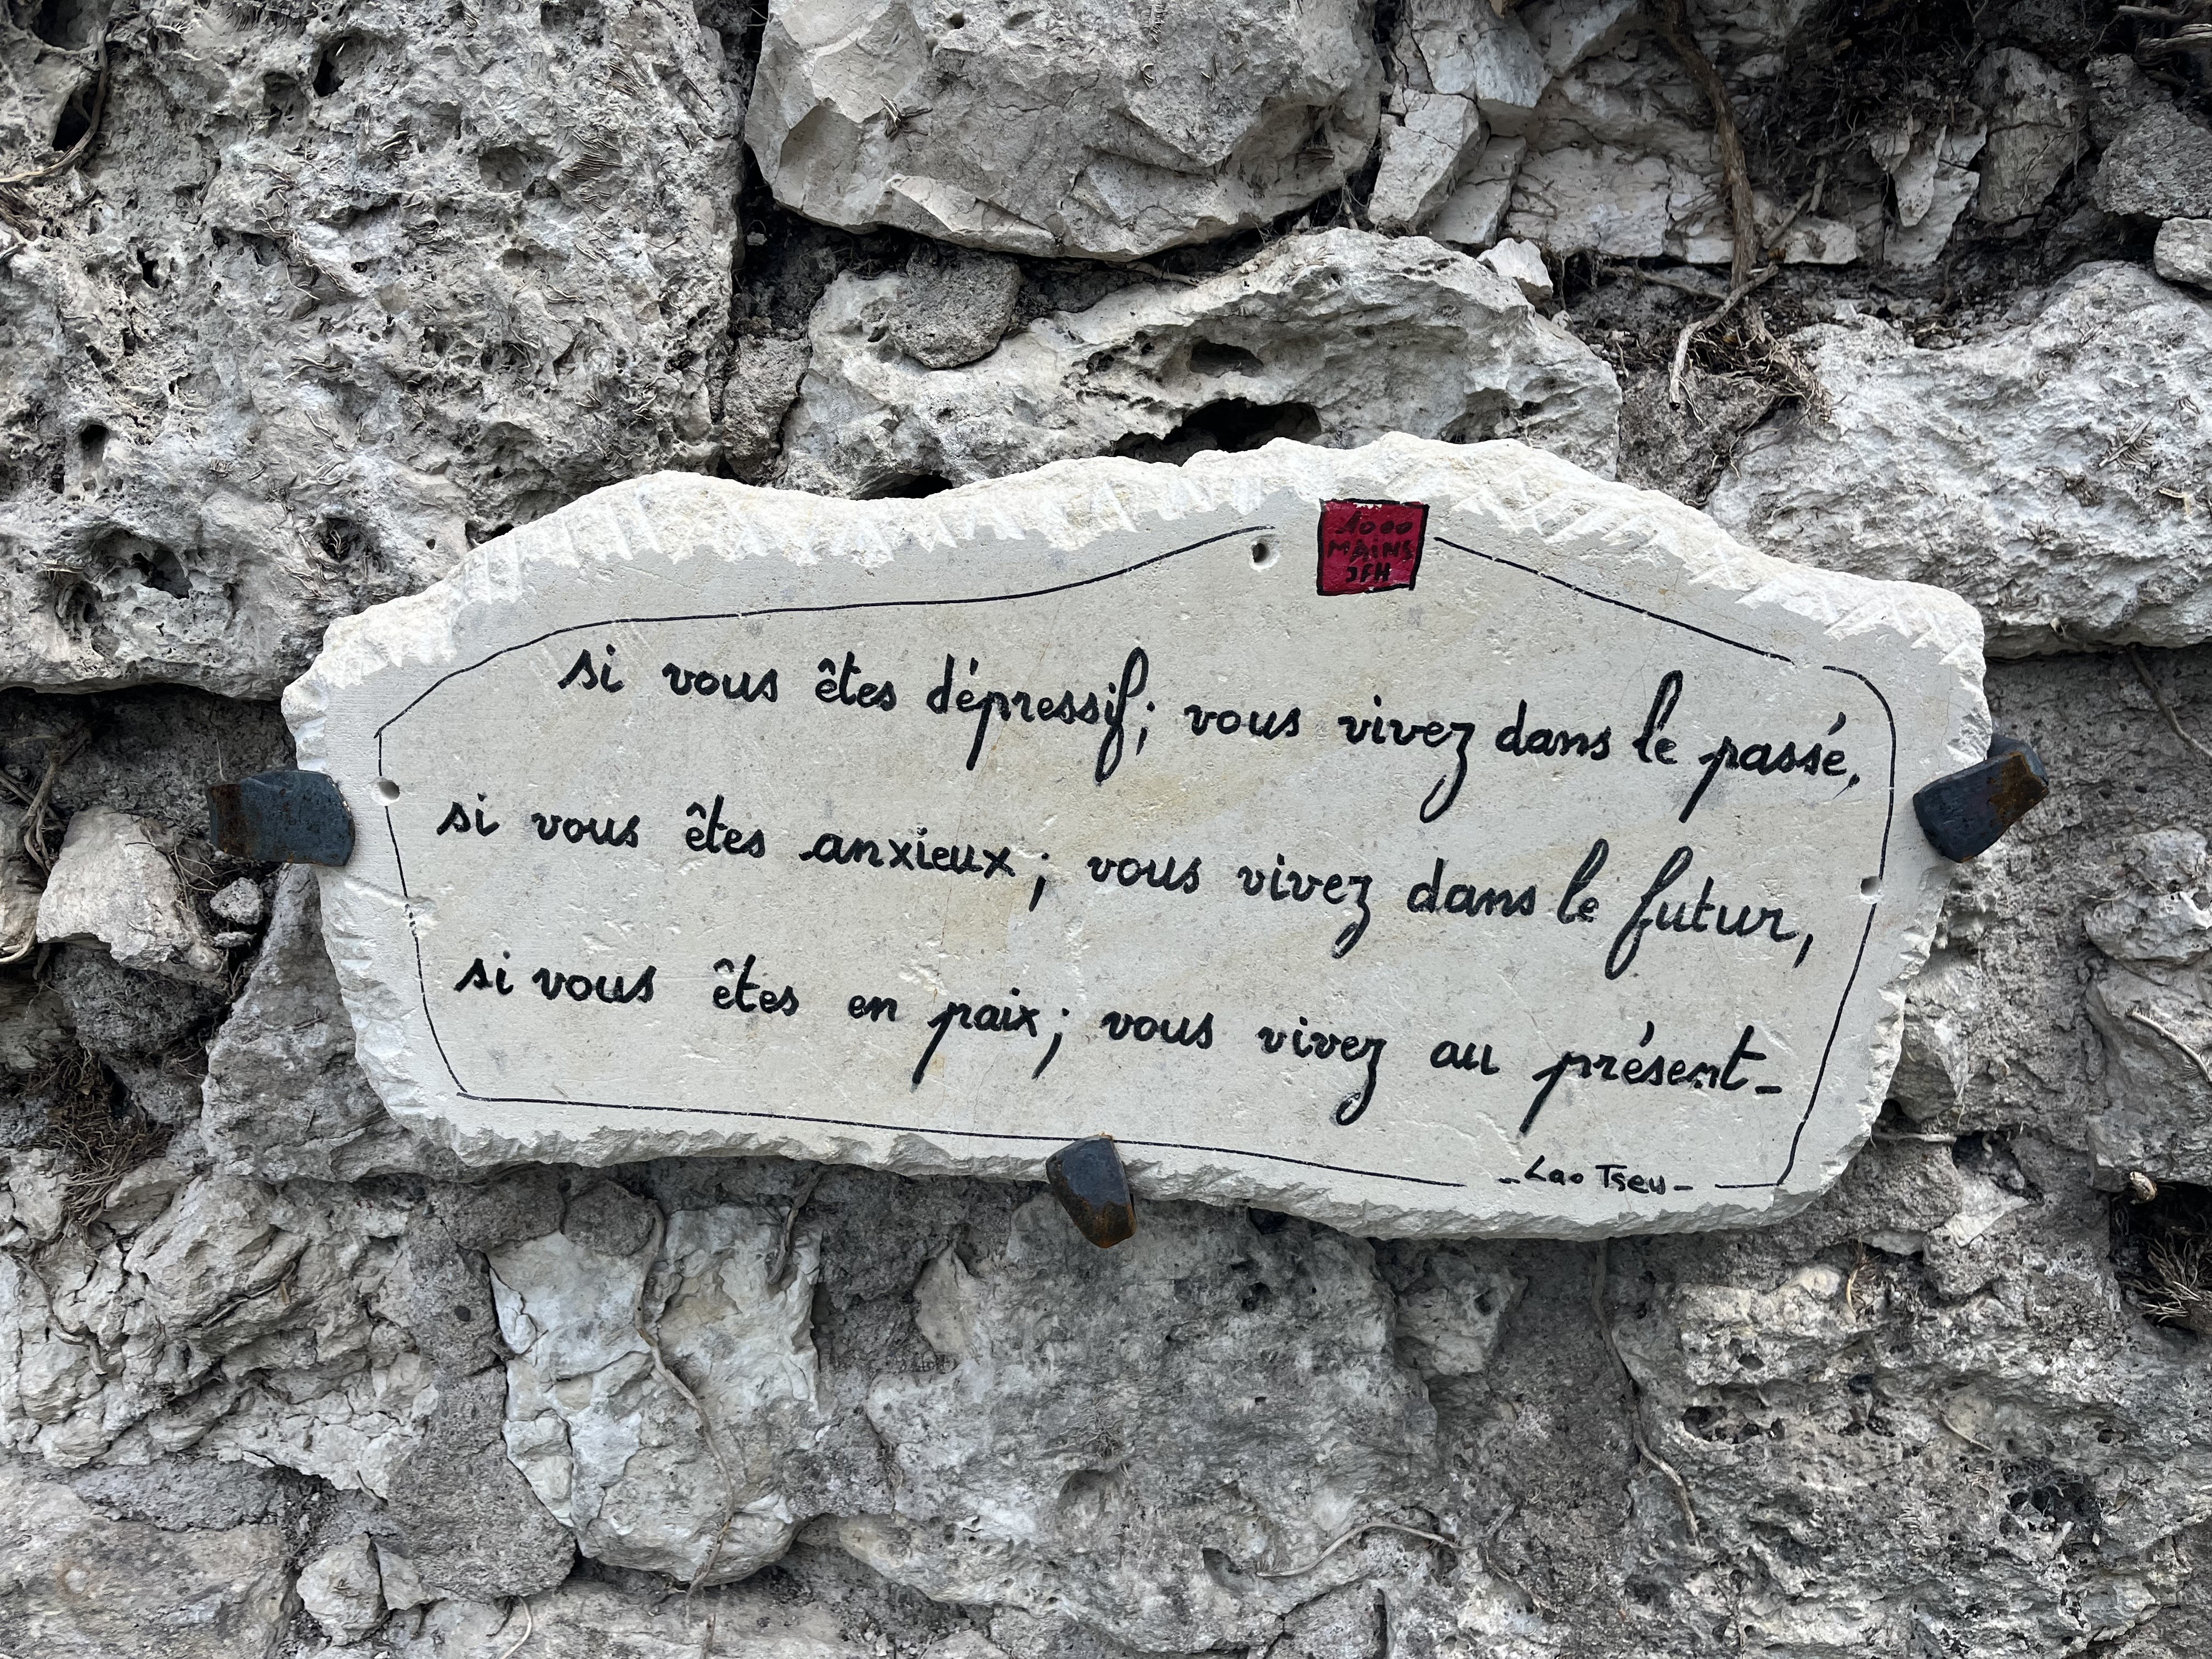 1000
MAINS
JFH
si vous êtes dépressif; vous vivez dans le passé,
si vous êtes anxieux; vous vivez dans le futur,
si vous êtes en paix; vous vivez au présent_
_Lao Tseu_